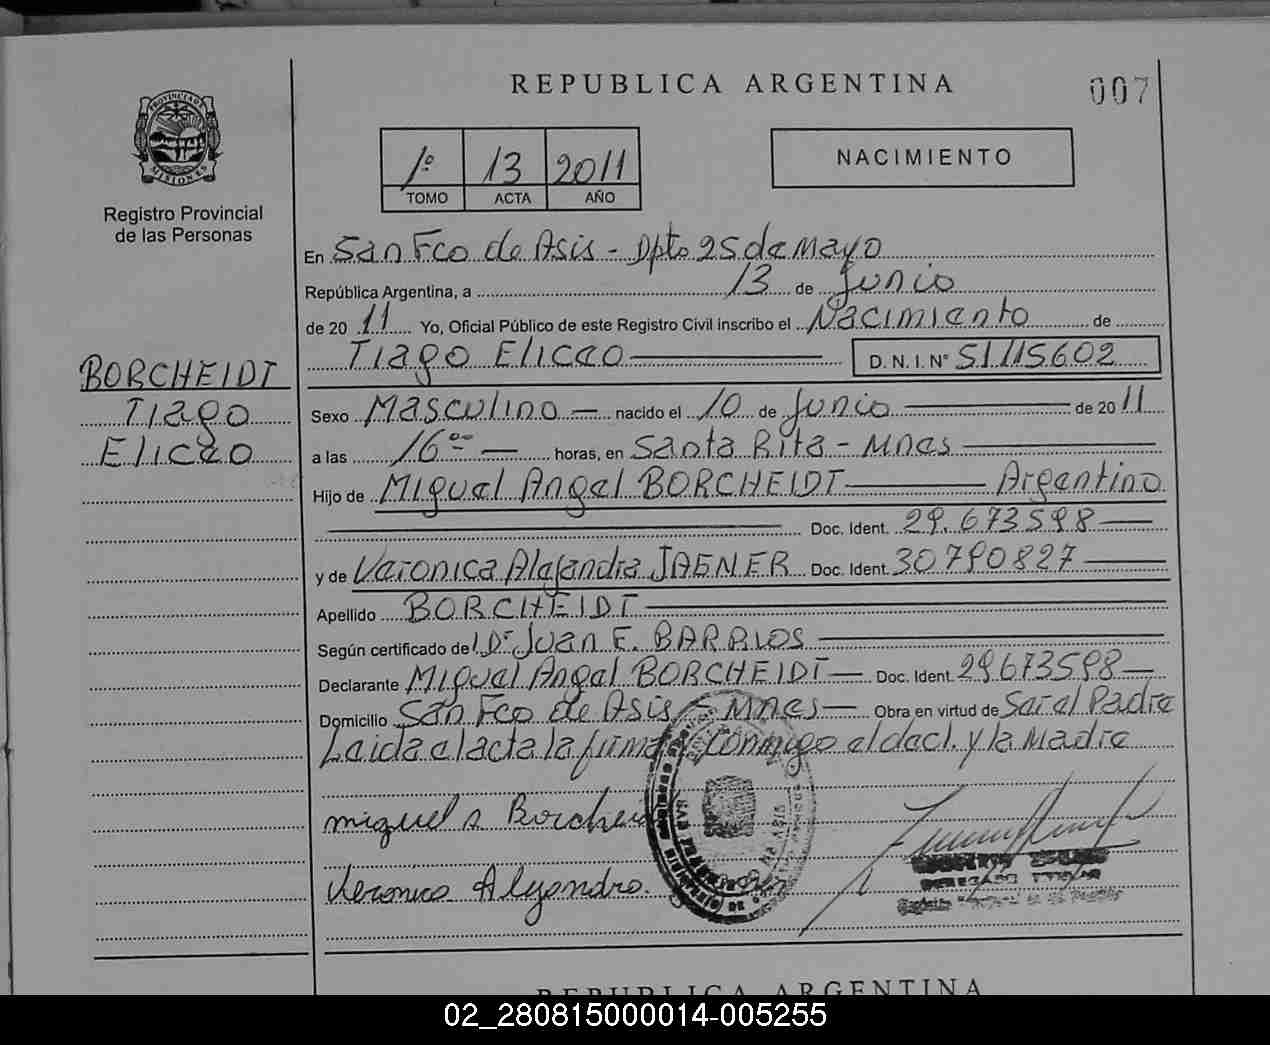 REPUBLICA ARGENTINA
007
1º 13 2011
TOMO ACTA AÑO
NACIMIENTO
PROVINCIA DE MISIONES
Registro Provincial
de las Personas
En San Fco de Asis - Dpto 25 de Mayo
República Argentina, a 13 de Junio
de 20 11 Yo, Oficial Público de este Registro Civil inscribo el Nacimiento de
Tiago Elicao D. N. I. Nº 51.115602
BORCHEIDT
Tiago
Elicao
Sexo Masculino nacido el 10 de Junio de 20 11
a las 16 00 horas, en Santa Rita - Mnes
Hijo de Miguel Angel BORCHEIDT Argentino
Doc. Ident. 29.673598
y de Veronica Alejandra JAGNER Doc. Ident. 30790827
Apellido BORCHEIDT
Según certificado de Dr Juan E. BARRIOS
Declarante Miguel Angel BORCHEIDT Doc. Ident. 29673598
Domicilio San Fco de Asis - Mnes Obra en virtud de Ser el Padre
Leida el acta la firma Conmigo el decl. y la Madre
miguel a Borchei
Veronica Alejandra
REPUBLICA ARGENTINA
02_280815000014-005255